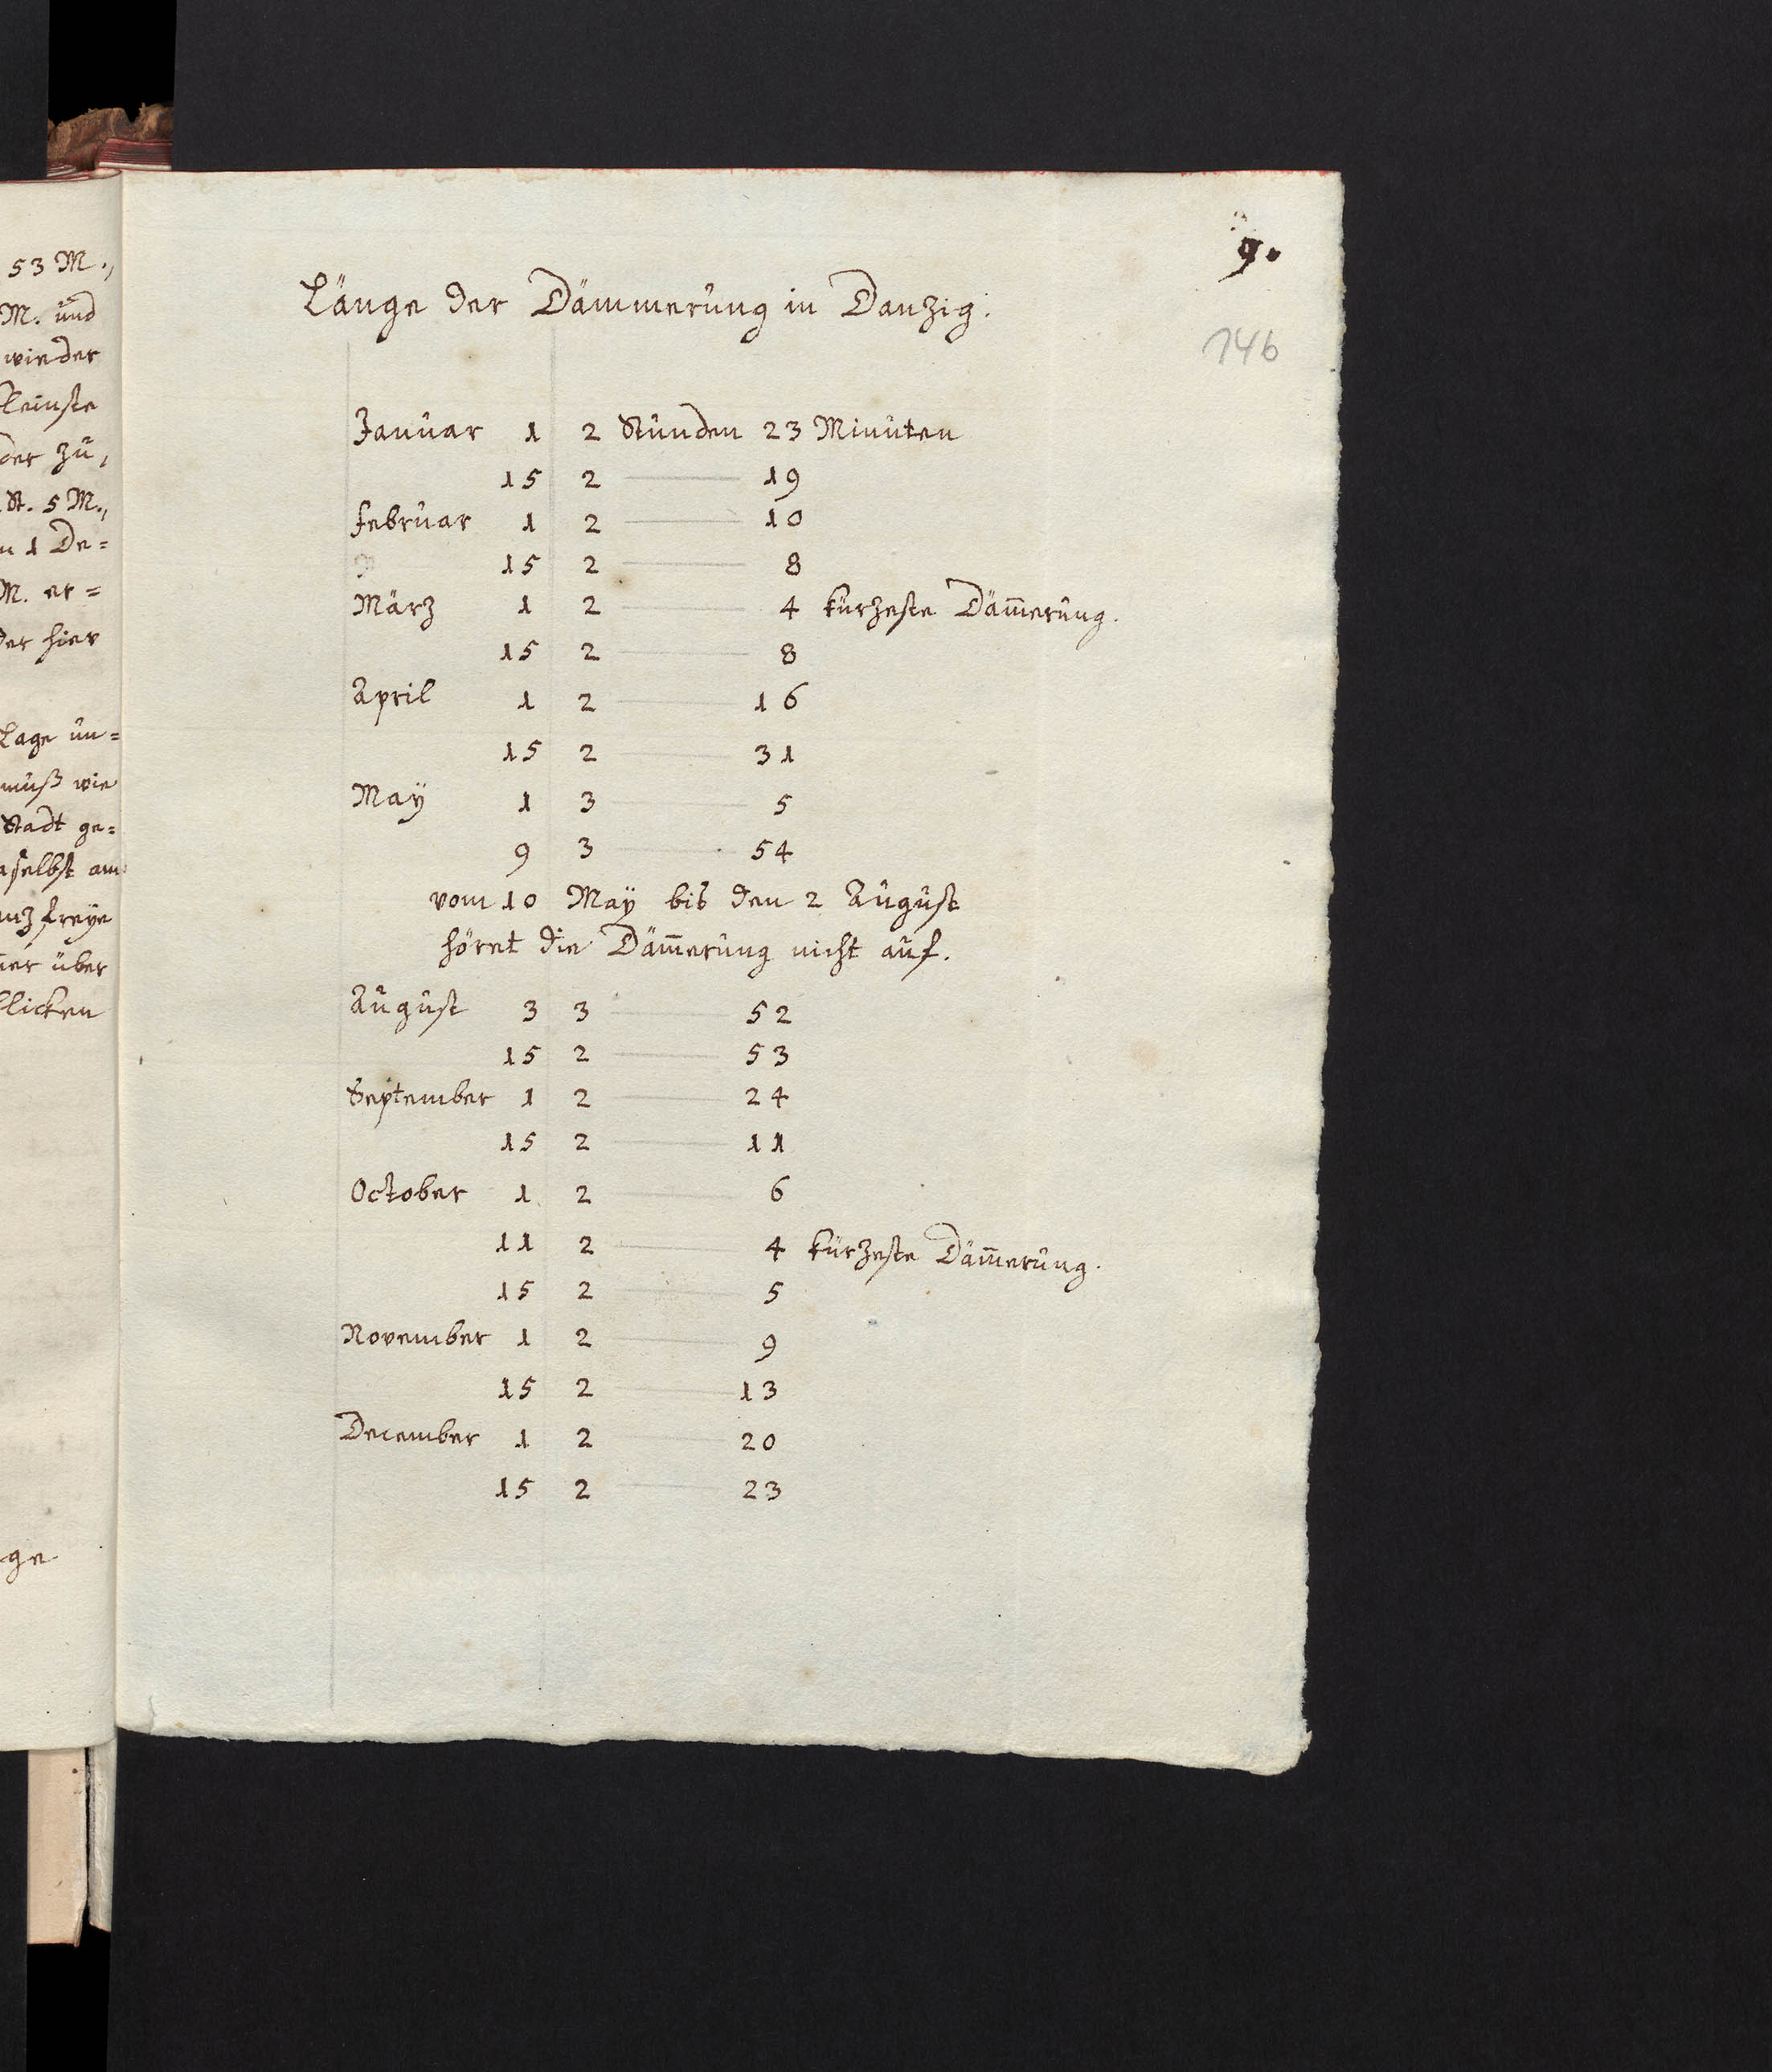 53 M.,
M. und
wieder
kleinste
der zu,
St. 5 M.,
1 De=
M. er=
der hier
Lage un=
muß wie
Stadt ge=
aselbst am
nz freye
über
blicken
ge
9.
146
Länge der Dämmerung in Danzig.
Januar 1 2 Stunden 23 Minuten
15 2 — 19
Februar 1 2 — 10
15 2 — 8
März 1 2 — 4 kürzeste Däm̄erung.
15 2 — 8
April 1 2 — 16
15 2 — 31
Maÿ 1 3 — 5
9 3 — 54
vom 10 Maÿ bis den 2 August
höret die Däm̄erung nicht auf.
August 3 3 — 52
15 2 — 53
September 1 2 — 24
15 2 — 11
October 1 2 — 6
11 2 — 4 kürzeste Däm̄erung.
15 2 — 5
November 1 2 — 9
15 2 — 13
December 1 2 — 20
15 2 — 23